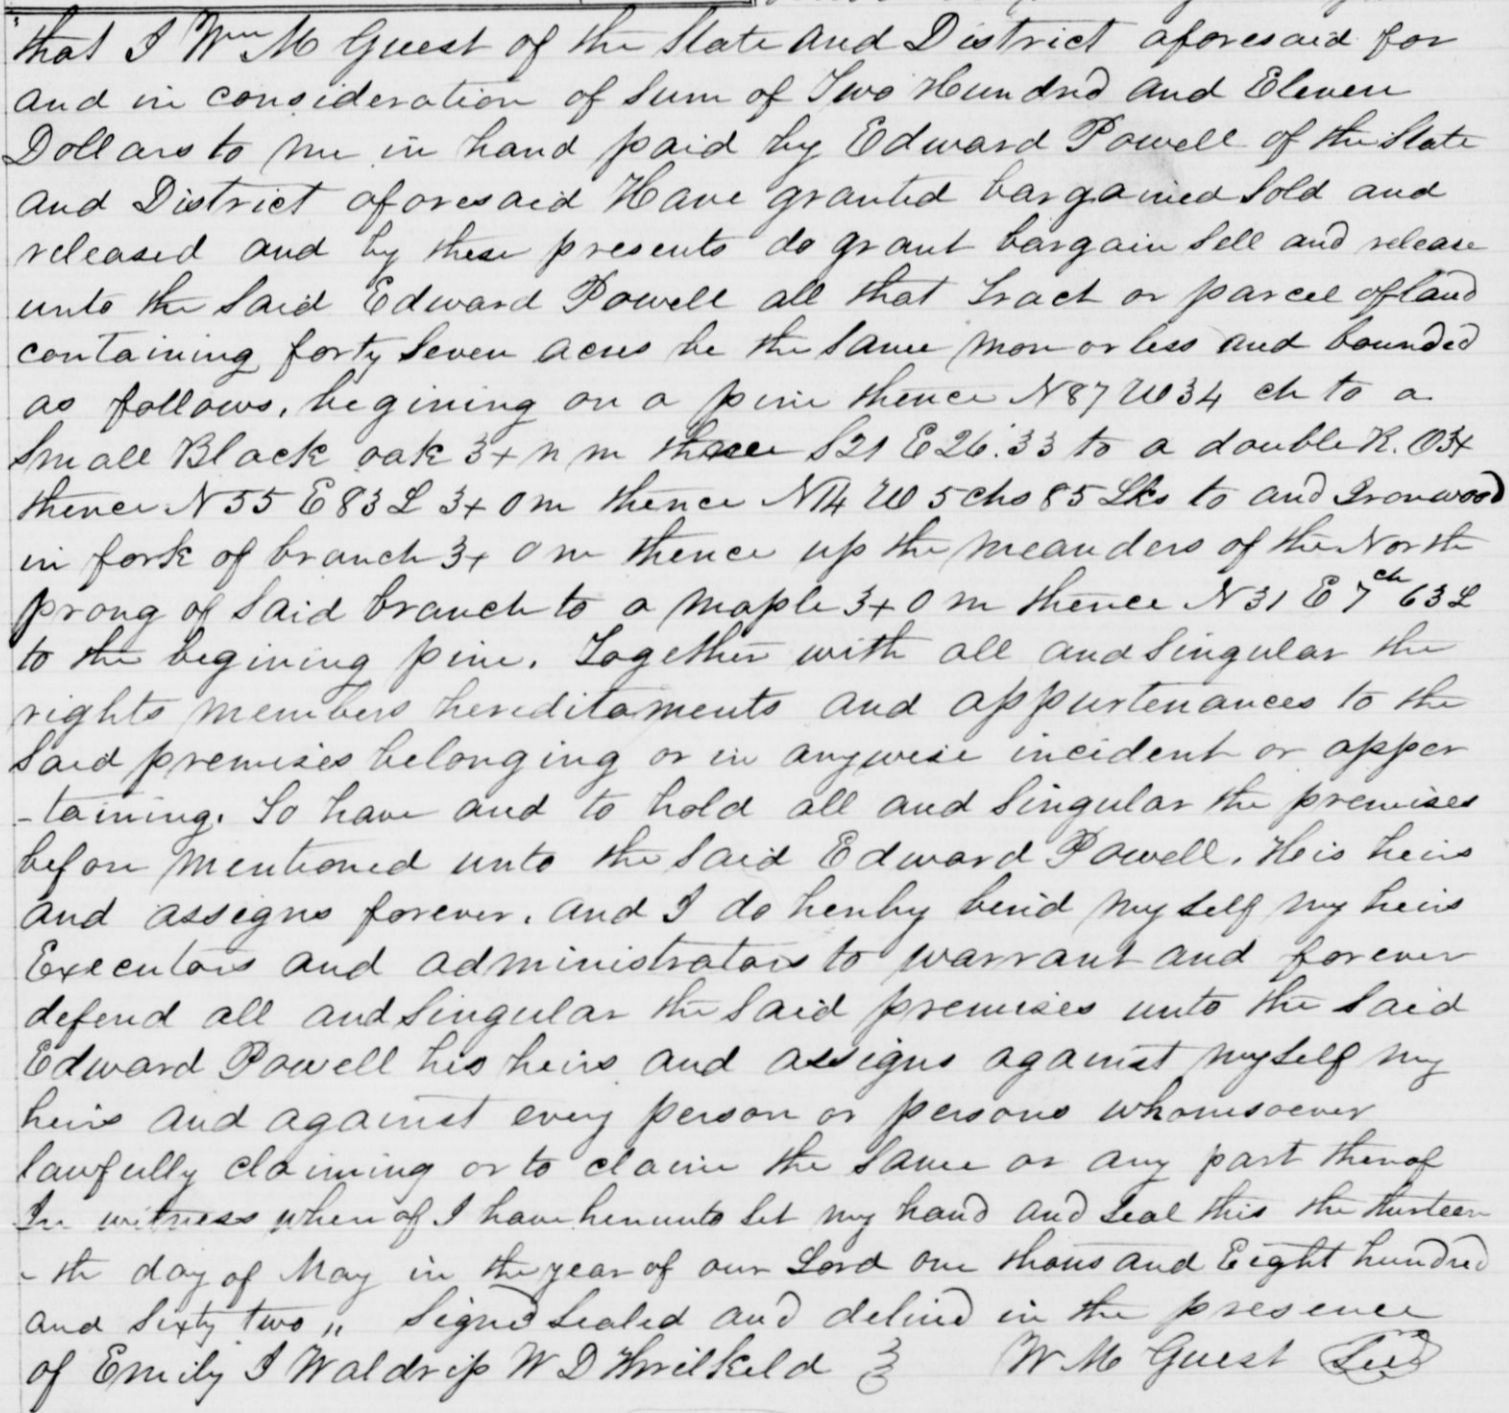 that I Wm M Guest of the State and District aforesaid for
and in consideration of sum of Two Hundred and Eleven
Dollars to me in hand paid by Edward Powell of the State
and District aforesaid Have granted bargained Sold and
released and by these presents do grant bargain Sell and release
unto the Said Edward Powell all that Tract or parcel of land
containing forty Seven acres be the Same more or less and bounded
as follows, begining on a pine thence N 87 W 34 ch to a
Small Black oak 3x n m thence S 21 E 26.33 to a double R. O 3x
thence N 55 E 83 L 3x o m thence N 14 W 5 chs 85 Lks to and Ironwood
in fork of branch 3x o m thence up the meanders of the North
prong of Said branch to a maple 3x o m thence N 31 E 7 ch 63 L
to the begining pine. Together with all and Singular the
rights members hereditaments and appurtenances to the
Said premises belonging or in anywise incident or apper
-taining. To have and to hold all and Singular the premises
before mentioned unto the Said Edward Powell. His heirs
and assigns forever. and I do hereby bind my Self my heirs
Executors and administrators to warrant and forever
defend all and Singular the Said premises unto the Said
Edward Powell his heirs and assigns against myself my
heirs and against every person or persons whomsoever
lawfully claiming or to claim the Same or any part thereof
In witness whereof I have hereunto Set my hand and Seal this the thirteen
-th day of May in the year of our Lord one thousand Eight hundred
and Sixty two " Signed Sealed and delived in the presence
of Emily I Waldrip W D W M Guest